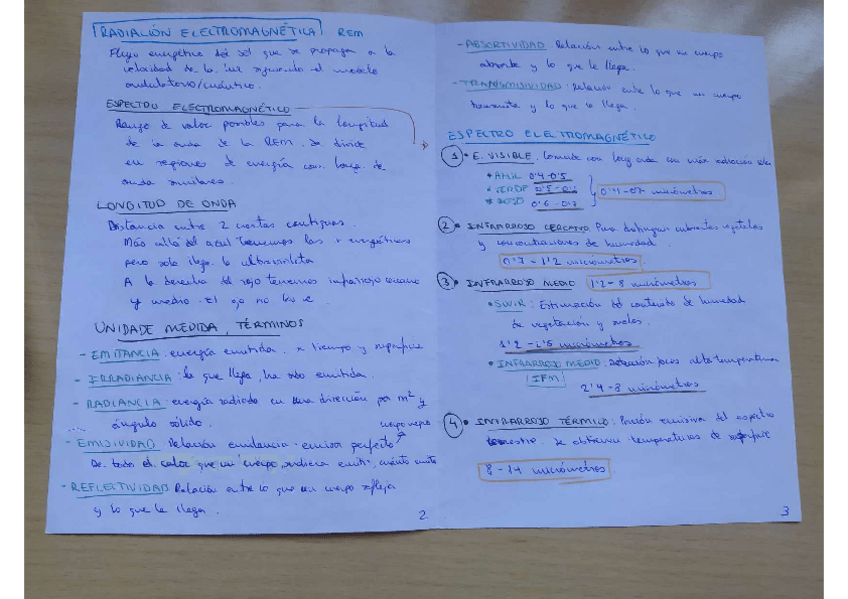 RADIACIÓN ELECTROMAGNÉTICA REM
Flujo energético del sol que se propaga a la
velocidad de la luz siguiendo el modelo
ondulatorio/cuántico.
ESPECTRO ELECTROMAGNÉTICO
Rango de valor posibles para la longitud
de la onda de la REM. Se divide
en regiones de energía con long. de
onda similares.
LONGITUD DE ONDA
Distancia entre 2 crestas contiguas.
Más allá del azul tenemos las + energéticas
pero solo llega la ultravioleta
A la derecha del rojo tenemos infrarrojo cercano
y medio. El ojo no los ve
UNIDADE MEDIDA, TÉRMINOS
- EMITANCIA: energía emitida x tiempo y superficie
- IRRADIANCIA: la que llega, ha sido emitida.
- RADIANCIA: energía radiada en una dirección por m² y
ángulo sólido. cuerpo negro
- EMISIVIDAD Relación emitancia - emisor perfecto
De todo el calor que un cuerpo pudiera emitir, cuánto emite
- REFLECTIVIDAD Relación entre lo que un cuerpo refleja
y lo que le llega.
2
- ABSORTIVIDAD Relación entre lo que un cuerpo
absorbe y lo que le llega.
- TRANSMISIVIDAD: Relación entre lo que un cuerpo
transmite y lo que le llega.
ESPECTRO ELECTROMAGNÉTICO
1 • E. VISIBLE. long onda con más radiación
• AZUL 0'4-0'5
• VERDE 0'5-0'6
• ROJO 0'6-0'7
0'4-07 micrómetros
2 • INFRARROJO CERCANO Para distinguir cubiertas vegetales
y concentraciones de humedad.
0'7 - 1'2 micrómetros.
3 • INFRARROJO MEDIO 1'2-8 micrómetros
• SWIR: Estimación del contenido de humedad
de vegetación y suelos.
1'2 - 2'5 micrómetros
• INFRARROJO MEDIO: detección focos alta temperatura
(IFM)
2'4-8 micrómetros
4 • INFRARROJO TÉRMICO: Porción emisiva del espectro
terrestre. Se obtienen temperaturas de superficie
8-14 micrómetros.
3